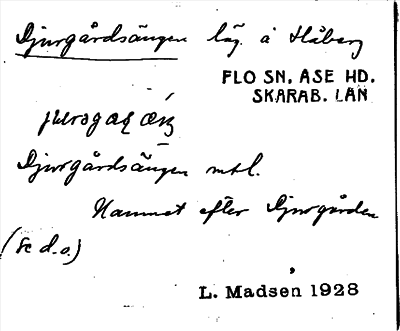 Djurgårdsängen läg. å Håberg
FLO SN. ASE HD.
SKARAB. LÄN
Djurgårdsängen mtl.
Namnet efter Djurgården
(se d.o.)
L. Madsen 1928